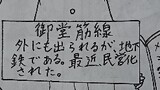 御堂筋線
外にも出られるが、地下
鉄である。最近、民営化
された。